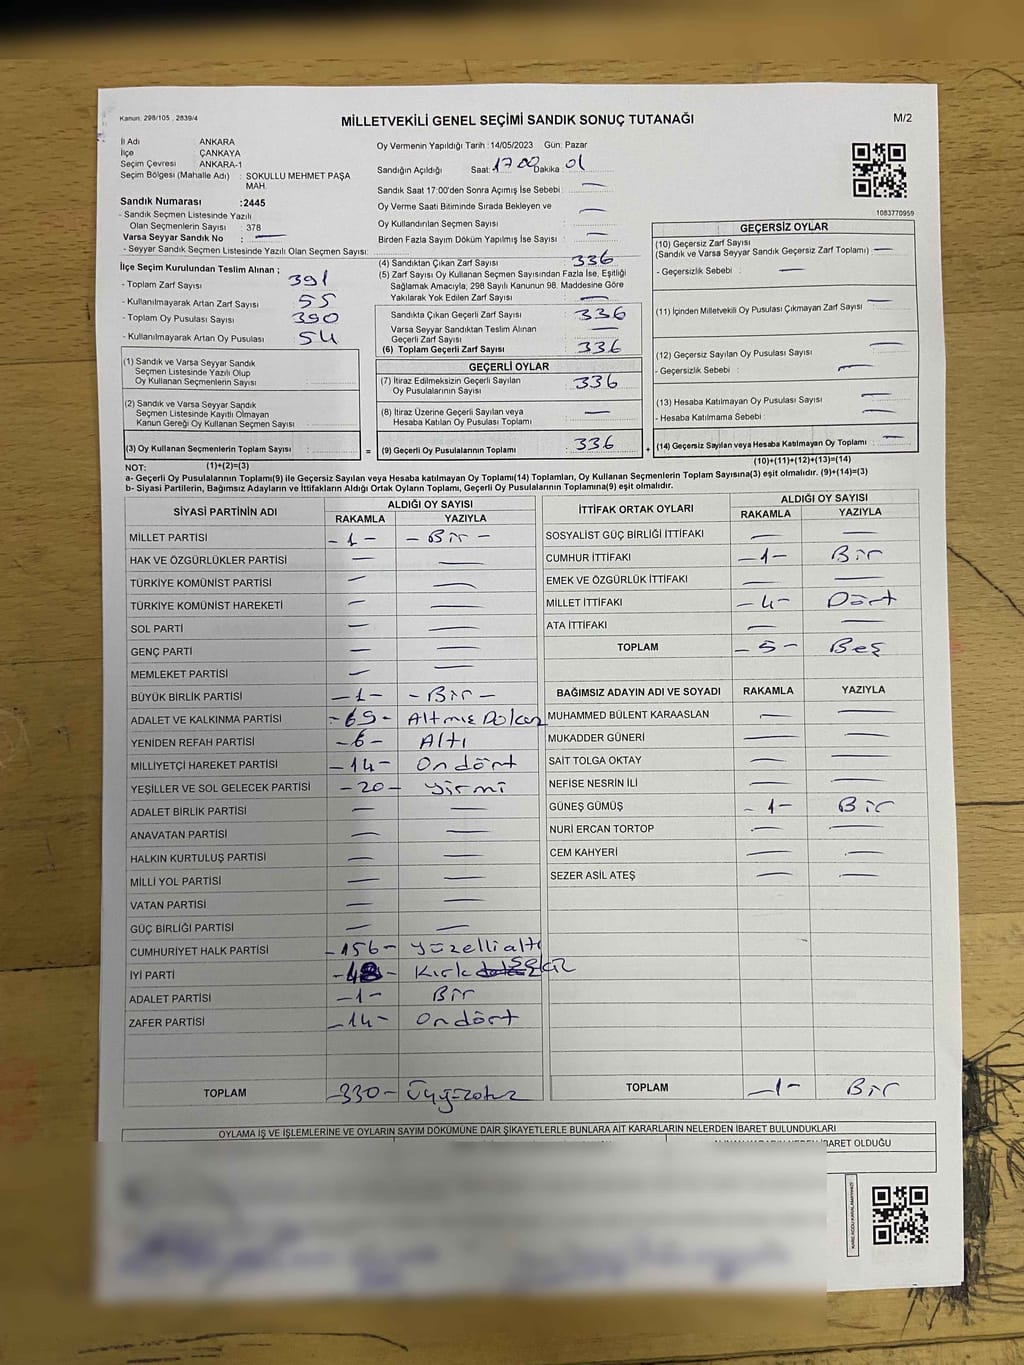 Kanun: 298/105 , 2839/4
MİLLETVEKİLİ GENEL SEÇİMİ SANDIK SONUÇ TUTANAĞI
M/2
İl Adı ANKARA
İlçe ÇANKAYA
Seçim Çevresi ANKARA-1
Seçim Bölgesi (Mahalle Adı) : SOKULLU MEHMET PAŞA MAH.
Sandık Numarası :2445
- Sandık Seçmen Listesinde Yazılı
Olan Seçmenlerin Sayısı : 378
Varsa Seyyar Sandık No : —
- Seyyar Sandık Seçmen Listesinde Yazılı Olan Seçmen Sayısı:
Oy Vermenin Yapıldığı Tarih :14/05/2023 Gün: Pazar
Sandığın Açıldığı Saat: 17 00 Dakika : 01
Sandık Saat 17:00'den Sonra Açımış İse Sebebi : —
Oy Verme Saati Bitiminde Sırada Bekleyen ve —
Oy Kullandırılan Seçmen Sayısı :
Birden Fazla Sayım Döküm Yapılmış İse Sayısı : —
1083770959
İlçe Seçim Kurulundan Teslim Alınan ;
- Toplam Zarf Sayısı : 391
- Kullanılmayarak Artan Zarf Sayısı : 55
- Toplam Oy Pusulası Sayısı : 390
- Kullanılmayarak Artan Oy Pusulası : 54
(1) Sandık ve Varsa Seyyar Sandık
Seçmen Listesinde Yazılı Olup
Oy Kullanan Seçmenlerin Sayısı :
(2) Sandık ve Varsa Seyyar Sandık
Seçmen Listesinde Kayıtlı Olmayan
Kanun Gereği Oy Kullanan Seçmen Sayısı :
(3) Oy Kullanan Seçmenlerin Toplam Sayısı :
(4) Sandıktan Çıkan Zarf Sayısı : 336
(5) Zarf Sayısı Oy Kullanan Seçmen Sayısından Fazla İse, Eşitliği
Sağlamak Amacıyla, 298 Sayılı Kanunun 98. Maddesine Göre
Yakılarak Yok Edilen Zarf Sayısı : —
Sandıkta Çıkan Geçerli Zarf Sayısı : 336
Varsa Seyyar Sandıktan Teslim Alınan
Geçerli Zarf Sayısı : —
(6) Toplam Geçerli Zarf Sayısı : 336
GEÇERLİ OYLAR
(7) İtiraz Edilmeksizin Geçerli Sayılan
Oy Pusulalarının Sayısı : 336
(8) İtiraz Üzerine Geçerli Sayılan veya
Hesaba Katılan Oy Pusulası Toplamı : —
= (9) Geçerli Oy Pusulalarının Toplamı : 336
GEÇERSİZ OYLAR
(10) Geçersiz Zarf Sayısı
(Sandık ve Varsa Seyyar Sandık Geçersiz Zarf Toplamı) : —
- Geçersizlik Sebebi : —
(11) İçinden Milletvekili Oy Pusulası Çıkmayan Zarf Sayısı : —
(12) Geçersiz Sayılan Oy Pusulası Sayısı : —
- Geçersizlik Sebebi : —
(13) Hesaba Katılmayan Oy Pusulası Sayısı : —
- Hesaba Katılmama Sebebi : —
+ (14) Geçersiz Sayılan veya Hesaba Katılmayan Oy Toplamı : —
NOT: (1)+(2)=(3)
(10)+(11)+(12)+(13)=(14)
a- Geçerli Oy Pusulalarının Toplamı(9) ile Geçersiz Sayılan veya Hesaba katılmayan Oy Toplamı(14) Toplamları, Oy Kullanan Seçmenlerin Toplam Sayısına(3) eşit olmalıdır. (9)+(14)=(3)
b- Siyasi Partilerin, Bağımsız Adayların ve İttifakların Aldığı Ortak Oyların Toplamı, Geçerli Oy Pusulalarının Toplamına(9) eşit olmalıdır.
SİYASİ PARTİNİN ADI ALDIĞI OY SAYISI
RAKAMLA YAZIYLA
MİLLET PARTİSİ -1- -Bir-
HAK VE ÖZGÜRLÜKLER PARTİSİ — —
TÜRKİYE KOMÜNİST PARTİSİ — —
TÜRKİYE KOMÜNİST HAREKETİ — —
SOL PARTİ — —
GENÇ PARTİ — —
MEMLEKET PARTİSİ — —
BÜYÜK BİRLİK PARTİSİ -1- -Bir-
ADALET VE KALKINMA PARTİSİ -69-
YENİDEN REFAH PARTİSİ -6- Altı
MİLLİYETÇİ HAREKET PARTİSİ -14- Ondört
YEŞİLLER VE SOL GELECEK PARTİSİ -20- yirmi
ADALET BİRLİK PARTİSİ — —
ANAVATAN PARTİSİ — —
HALKIN KURTULUŞ PARTİSİ — —
MİLLİ YOL PARTİSİ — —
VATAN PARTİSİ — —
GÜÇ BİRLİĞİ PARTİSİ — —
CUMHURİYET HALK PARTİSİ -156- yüzellialtı
İYİ PARTİ -48- Kırk sekiz
ADALET PARTİSİ -1- Bir
ZAFER PARTİSİ -14- Ondört
TOPLAM -330- Üçyüzotuz
İTTİFAK ORTAK OYLARI ALDIĞI OY SAYISI
RAKAMLA YAZIYLA
SOSYALİST GÜÇ BİRLİĞİ İTTİFAKI — —
CUMHUR İTTİFAKI -1- Bir
EMEK VE ÖZGÜRLÜK İTTİFAKI — —
MİLLET İTTİFAKI -4- Dört
ATA İTTİFAKI — —
TOPLAM -5- Beş
BAĞIMSIZ ADAYIN ADI VE SOYADI RAKAMLA YAZIYLA
MUHAMMED BÜLENT KARAASLAN — —
MUKADDER GÜNERİ — —
SAİT TOLGA OKTAY — —
NEFİSE NESRİN İLİ — —
GÜNEŞ GÜMÜŞ -1- Bir
NURİ ERCAN TORTOP — —
CEM KAHYERİ — —
SEZER ASİL ATEŞ — —
TOPLAM -1- Bir
OYLAMA İŞ VE İŞLEMLERİNE VE OYLARIN SAYIM DÖKÜMÜNE DAİR ŞİKAYETLERLE BUNLARA AİT KARARLARIN NELERDEN İBARET BULUNDUKLARI
İBARET OLDUĞU